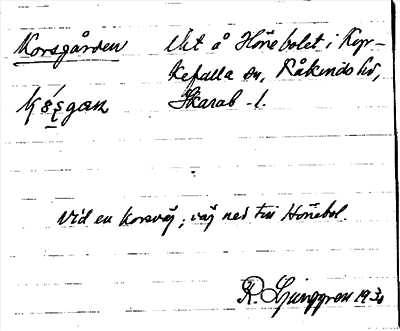 Korsgården
Ut å Hönebolet i Kyr-
kefalla sn, Kåkinds hd,
Skarab. l.
Vid en korsväg; väg ned till Hönebol.
R. Ljunggren 1930